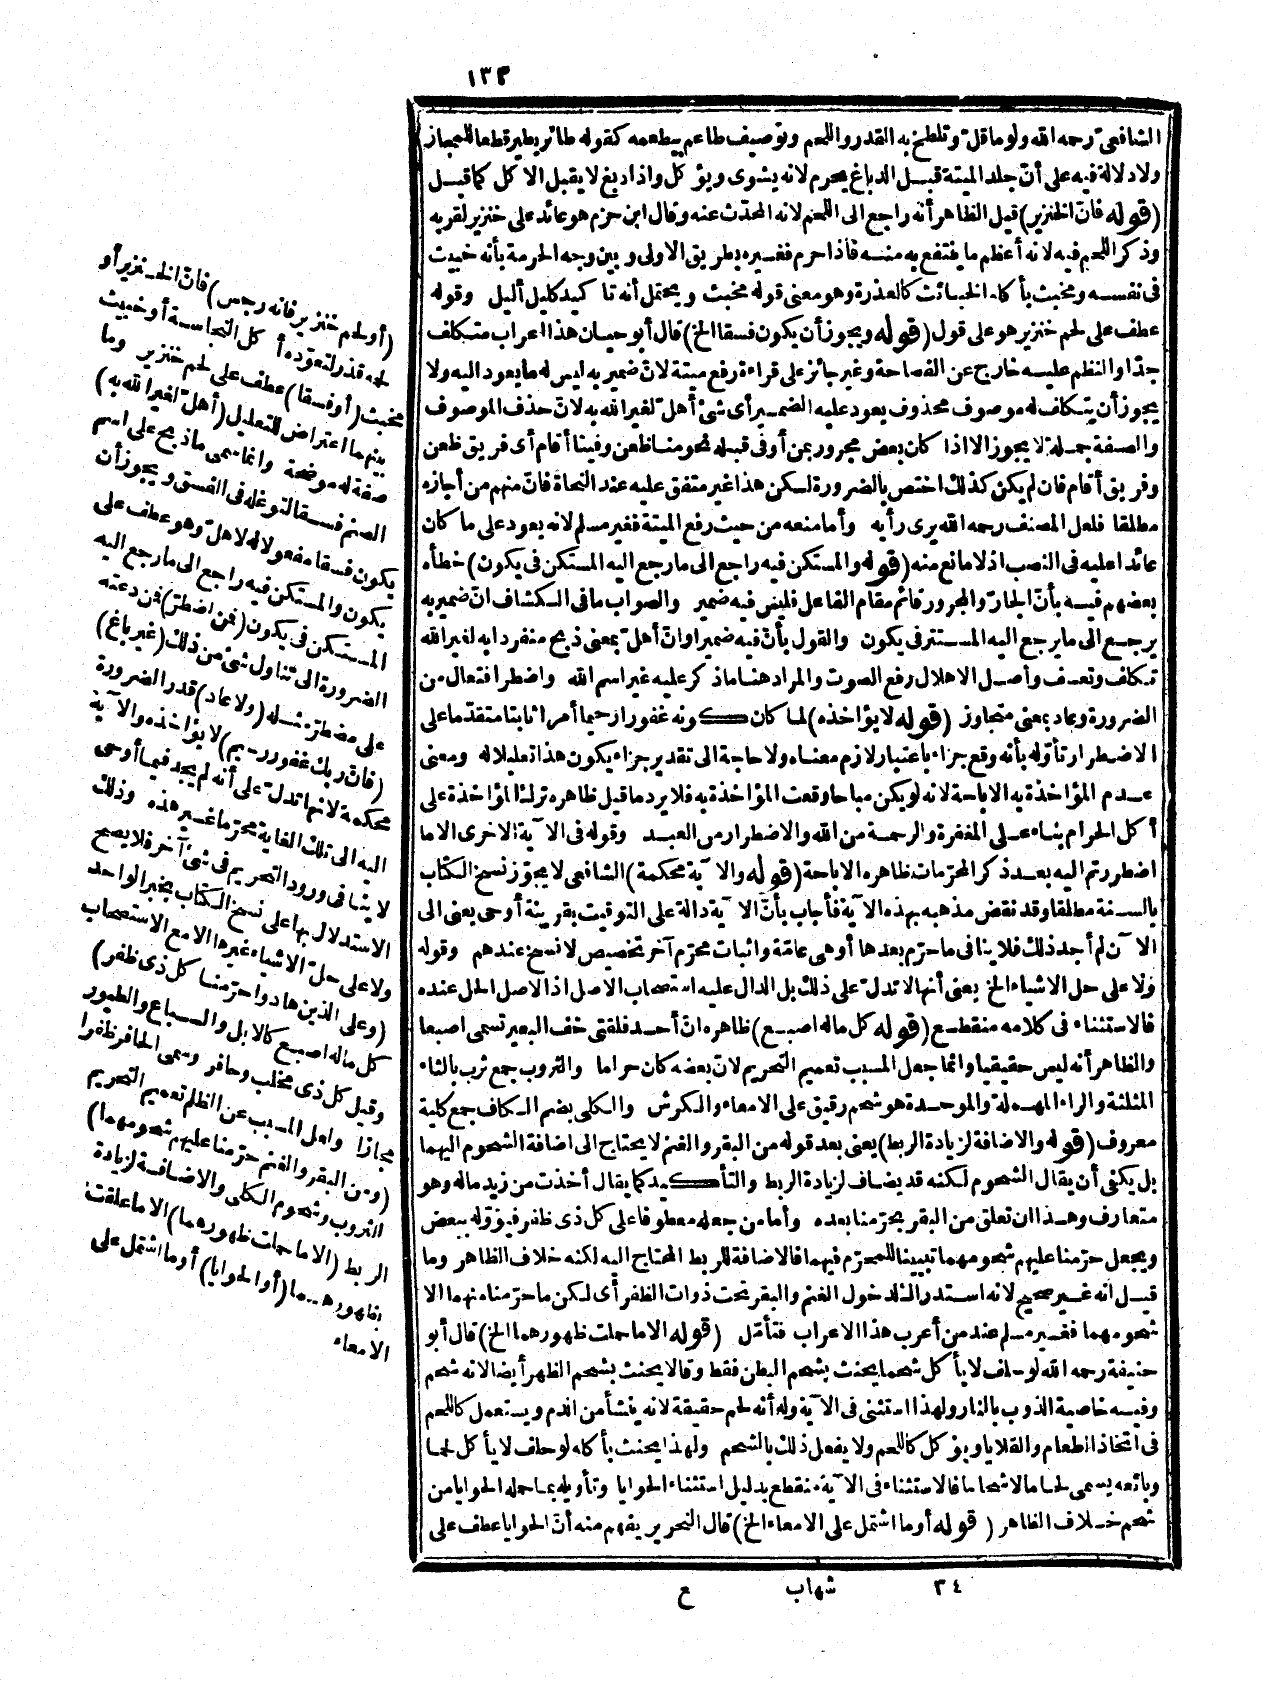 ١٣٣
الشافعيّ رحمه الله ولو ما قلّ وتلطخ به القدر واللحم وتوصيف طاعم بيطعمه كقوله طائر يطير قطعا للمجاز
ولا دلالة فيه على أنّ جلد الميتة قبل الدباغ يحرم لانه يشوى ويؤكل واذا دبغ لا يقبل الاكل كما قيل
(قوله فانّ الخنزير) قيل الظاهر أنه راجع الى اللحم لانه المحدّث عنه وقال ابن حزم هو عائد على خنزير لقربه
وذكر اللحم فيه لانه أعظم ما ينتفع به منه فاذا حرم فغيره بطريق الاولى وبين وجه الحرمة بأنه خبيث
فى نفسه ومخبث بأكله الخبائث كالعذرة وهو معنى قوله مخبث ويحتمل أنه تأكيد كليل أليل وقوله
عطف على لحم خنزير هو على قول (قوله ويجوز أن يكون فسقا الخ) قال أبو حيان هذا اعراب متكلف
جدّا والنظم عليه خارج عن الفصاحة وغير جائز على قراءة رفع ميتة لانّ ضمير به ليس له ما يعود اليه ولا
يجوز أن يتكلف له موصوف محذوف يعود عليه الضمير أى شئ أهلّ لغير الله به لانّ حذف الموصوف
والصفة جملة لا يجوز الا اذا كان بعض مجرور بمن أو فى قبله نحو منا ظعن وفينا أقام أى فريق ظعن
وفريق أقام فان لم يكن كذلك اختص بالضرورة لكن هذا غير متفق عليه عند النحاة فانّ منهم من أجازه
مطلقا فلعل المصنف رحمه الله يرى رأيه وأما منعه من حيث رفع الميتة فغير مسلم لانه يعود على ما كان
عائدا عليه فى النصب اذ لا مانع منه (قوله والمستكن فيه راجع الى ما رجع اليه المستكن فى يكون) خطأه
بعضهم فيه بأنّ الجارّ والمجرور قائم مقام الفاعل فليس فيه ضمير والصواب ما فى الكشاف انّ ضمير به
يرجع الى ما يرجع اليه المستتر فى يكون والقول بأنّ فيه ضميرا وانّ أهلّ بمعنى ذبح منفردا به لغير الله
تكلف وتعسف وأصل الاهلال رفع الصوت والمراد هنا ما ذكر عليه غير اسم الله واضطر افتعال من
الضرورة وعاد بمعنى متجاوز (قوله لا يؤاخذه) لما كان كونه غفورا رحيما أمرا ثابتا متقدّما على
الاضطرار تأوّله بأنه وقع جزاء باعتبار لازم معناه ولا حاجة الى تقدير جزاء يكون هذا تعليلا له ومعنى
عدم المؤاخذة به الاباحة لانه لو يكن مباحا وقعت المؤاخذة به فلا يرد ما قيل ظاهره ترك المؤاخذة على
أكل الحرام بناء على المغفرة والرحمة من الله والاضطرار من العبد وقوله فى الآية الاخرى الا ما
اضطررتم اليه بعد ذكر المحرّمات ظاهره الاباحة (قوله والآية محكمة) الشافعى لا يجوّز نسخ الكتاب
بالسنة مطلقا وقد نقض مذهبه بهذه الآية فأجاب بأنّ الآية دالة على التوقيت بقرينة أوحى يعنى الى
الآن لم أجد ذلك فلا ينافى ما حرّم بعدها أو هى عامّة واثبات محرّم آخر تخصيص لا نسخ عندهم وقوله
ولا على حل الاشياء الخ يعنى أنها لا تدلّ على ذلك بل الدال عليه استصحاب الاصل اذ الاصل الحل عنده
فالاستثناء فى كلامه منقطع (قوله كل ما له اصبع) ظاهره انّ أحد فلقتى خف البعير تسمى اصبعا
والظاهر أنه ليس حقيقيا وانما جعل المسبب تعميم التحريم لانّ بعضه كان حراما والثروب جمع ثرب بالثاء
المثلثة والراء المهملة والموحدة هو شحم رقيق على الامعاء والكرش والكلى بضم الكاف جمع كلية
معروف (قوله والاضافة لزيادة الربط) يعنى بعد قوله من البقر والغنم لا يحتاج الى اضافة الشحوم اليهما
بل يكفى أن يقال الشحوم لكنه قد يضاف لزيادة الربط والتأكيد كما يقال أخذت من زيد ماله وهو
متعارف وهذا ان تعلق من البقر بحرّمنا بعده وأما من جعله معطوفا على كل ذى ظفر فيؤوّله ببعض
ويجعل حرّمنا عليهم شحومهما تبيينا للمحرّم فيهما فالاضافة للربط المحتاج اليه لكنه خلاف الظاهر وما
قيل انه غير صحيح لانه استدراك لدخول الغنم والبقر تحت ذوات الظفر أى لكن ما حرّمنا منهما الا
شحومهما فغير مسلم عند من أعرب هذا الاعراب فتأمّل (قوله الا ما حملت ظهورهما الخ) قال أبو
حنيفة رحمه الله لو حلف لا يأكل شحما يحنث بشحم البطن فقط وقالا يحنث بشحم الظهر أيضا لانه شحم
وفيه خاصية الذوب بالنار ولهذا استثنى فى الآية وله أنه لحم حقيقة لانه ينشأ من الدم ويستعمل كاللحم
فى اتخاذ الطعام والقلايا ويؤكل كاللحم ولا يفعل ذلك بالشحم ولهذا يحنث بأكله لو حلف لا يأكل لحما
وبائعه يسمى لحاما لا شحاما فالاستثناء فى الآية منقطع بدليل استثناء الحوايا وتأويله بما حمله الحوايا من
شحم خلاف الظاهر (قوله أو ما اشتمل على الامعاء الخ) قال النحرير يفهم منه أنّ الحوايا عطف على
(أو لحم خنزير فانه رجس) فانّ الخنزير أو
لحمه قذر لتعوّده أكل النجاسة أو خبيث
مخبث (أو فسقا) عطف على لحم خنزير وما
بينهما اعتراض للتعليل (أهلّ لغير الله به)
صفة له موضحة وانما سمى ما ذبح على اسم
الصنم فسقا لتوغله فى الفسق ويجوز أن
يكون فسقا مفعولا له لاهلّ وهو عطف على
يكون والمستكن فيه راجع الى ما رجع اليه
المستكن فى يكون (فمن اضطرّ) فمن دعته
الضرورة الى تناول شئ من ذلك (غير باغ)
على مضطرّ مثله (ولا عاد) قدر الضرورة
(فانّ ربك غفور رحيم) لا يؤاخذه والآية
محكمة لانها تدلّ على أنه لم يجد فيما أوحى
اليه الى تلك الغاية محرّما غير هذه وذلك
لا ينافى ورود التحريم فى شئ آخر فلا يصح
الاستدلال بها على نسخ الكتاب بخبر الواحد
ولا على حلّ الاشياء غيرها الا مع الاستصحاب
(وعلى الذين هادوا حرّمنا كل ذى ظفر)
كل ما له اصبع كالابل والسباع والطيور
وقيل كل ذى مخلب وحافر وسمى الحافر ظفرا
مجازا ولعل المسبب عن الظلم تعميم التحريم
(ومن البقر والغنم حرّمنا عليهم شحومهما)
الثروب وشحوم الكلى والاضافة لزيادة
الربط (الا ما حملت ظهورهما) الا ما علقت
بظهورهما (أو الحوايا) أو ما اشتمل على
الامعاء
٣٤ شهاب ع